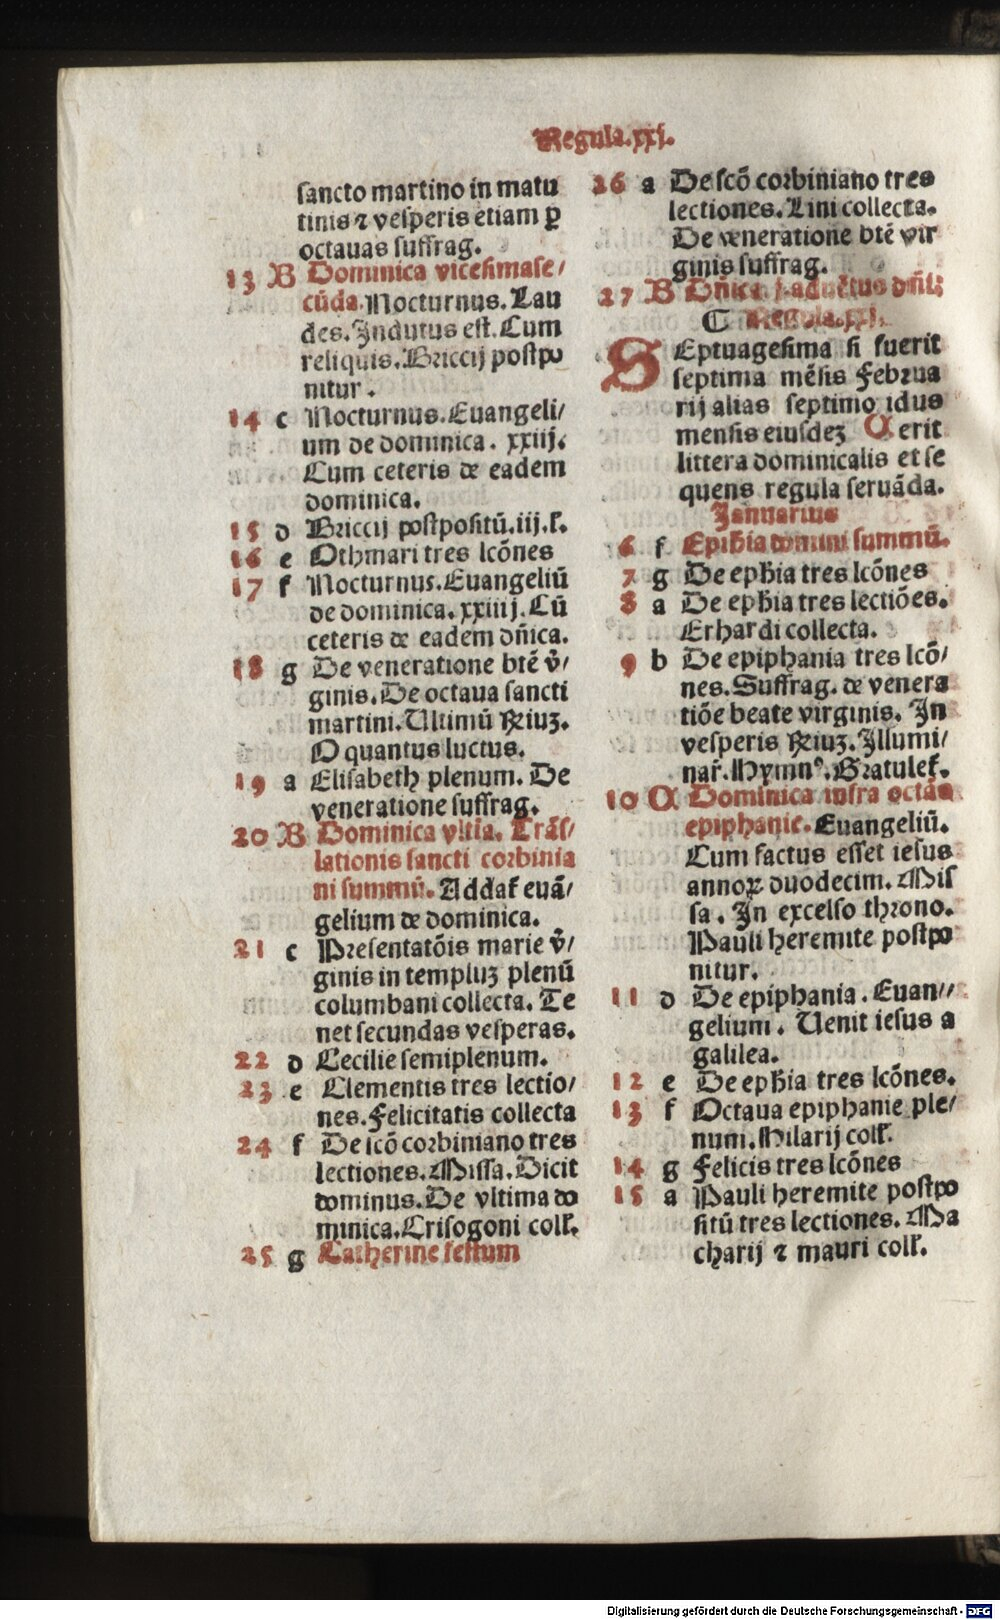 Regula.xxj.
sancto martino in matu
tinis ⁊ vesperis etiam ꝑ
octauas suffrag.
13 B Dominica vicesimase/
cūda. Nocturnus. Lau
des. Indutus est. Cum
reliquis. Briccij postpo
nitur.
14 c Nocturnus. Euangeli/
um de dominica. xxiij.
Cum ceteris de eadem
dominica.
15 d Briccij postpositū. iij. ł.
16 e Othmari tres lcōnes
17 f Nocturnus. Euangeliū
de dominica. xxiiij. Cū
ceteris de eadem dñica.
18 g De veneratione btē v̄/
ginis. De octaua sancti
martini. Ultimū ꝶiuꝫ.
O quantus luctus.
19 a Elisabeth plenum. De
veneratione suffrag.
20 B Dominica vltīa. Trāſ/
lationis sancti corbinia
ni summū. Addat̄ euā/
gelium de dominica.
21 c Presentatōis marie v̄/
ginis in templuꝫ plenū
columbani collecta. Te
net secundas vesperas.
22 d Cecilie semiplenum.
23 e Clementis tres lectio/
nes. Felicitatis collecta
24 f De scō corbiniano tres
lectiones. Missa. Dicit
dominus. De vltima do
minica. Crisogoni coll̄.
25 g Catherine festum
26 a De scō corbiniano tres
lectiones. Lini collecta.
De veneratione btē vir
ginis suffrag.
27 B Dñica j. aduētus dñi.
C Regula. XXI.
SEptuagesima si fuerit
septima mēsis Februa
rij alias septimo idus
mensis eiusdeꝫ A erit
littera dominicalis et se
quens regula seruāda.
Januarius
6 f Epiphīa domini summū.
7 g De ephīa tres lcōnes
8 a De ephīa tres lectiōes.
Erhardi collecta.
9 b De epiphania tres lcō/
nes. Suffrag. de venera
tiōe beate virginis. In
vesperis ꝶiuꝫ. Illumi/
nar̄. Hymnꝰ. Gratulet̄.
10 A Dominica infra octāā
epiphanie. Euangeliū.
Cum factus esset iesus
annoꝝ duodecim. Mis
sa. In excelso throno.
Pauli heremite postpo
nitur.
11 d De epiphania. Euan//
gelium. Uenit iesus a
galilea.
12 e De ephīa tres lcōnes.
13 f Octaua epiphanie ple/
num. Hilarij coll̄.
14 g Felicis tres lcōnes
15 a Pauli heremite postpo
sitū tres lectiones. Ma
charij ⁊ mauri coll̄.
Digitalisierung gefördert durch die Deutsche Forschungsgemeinschaft - DFG